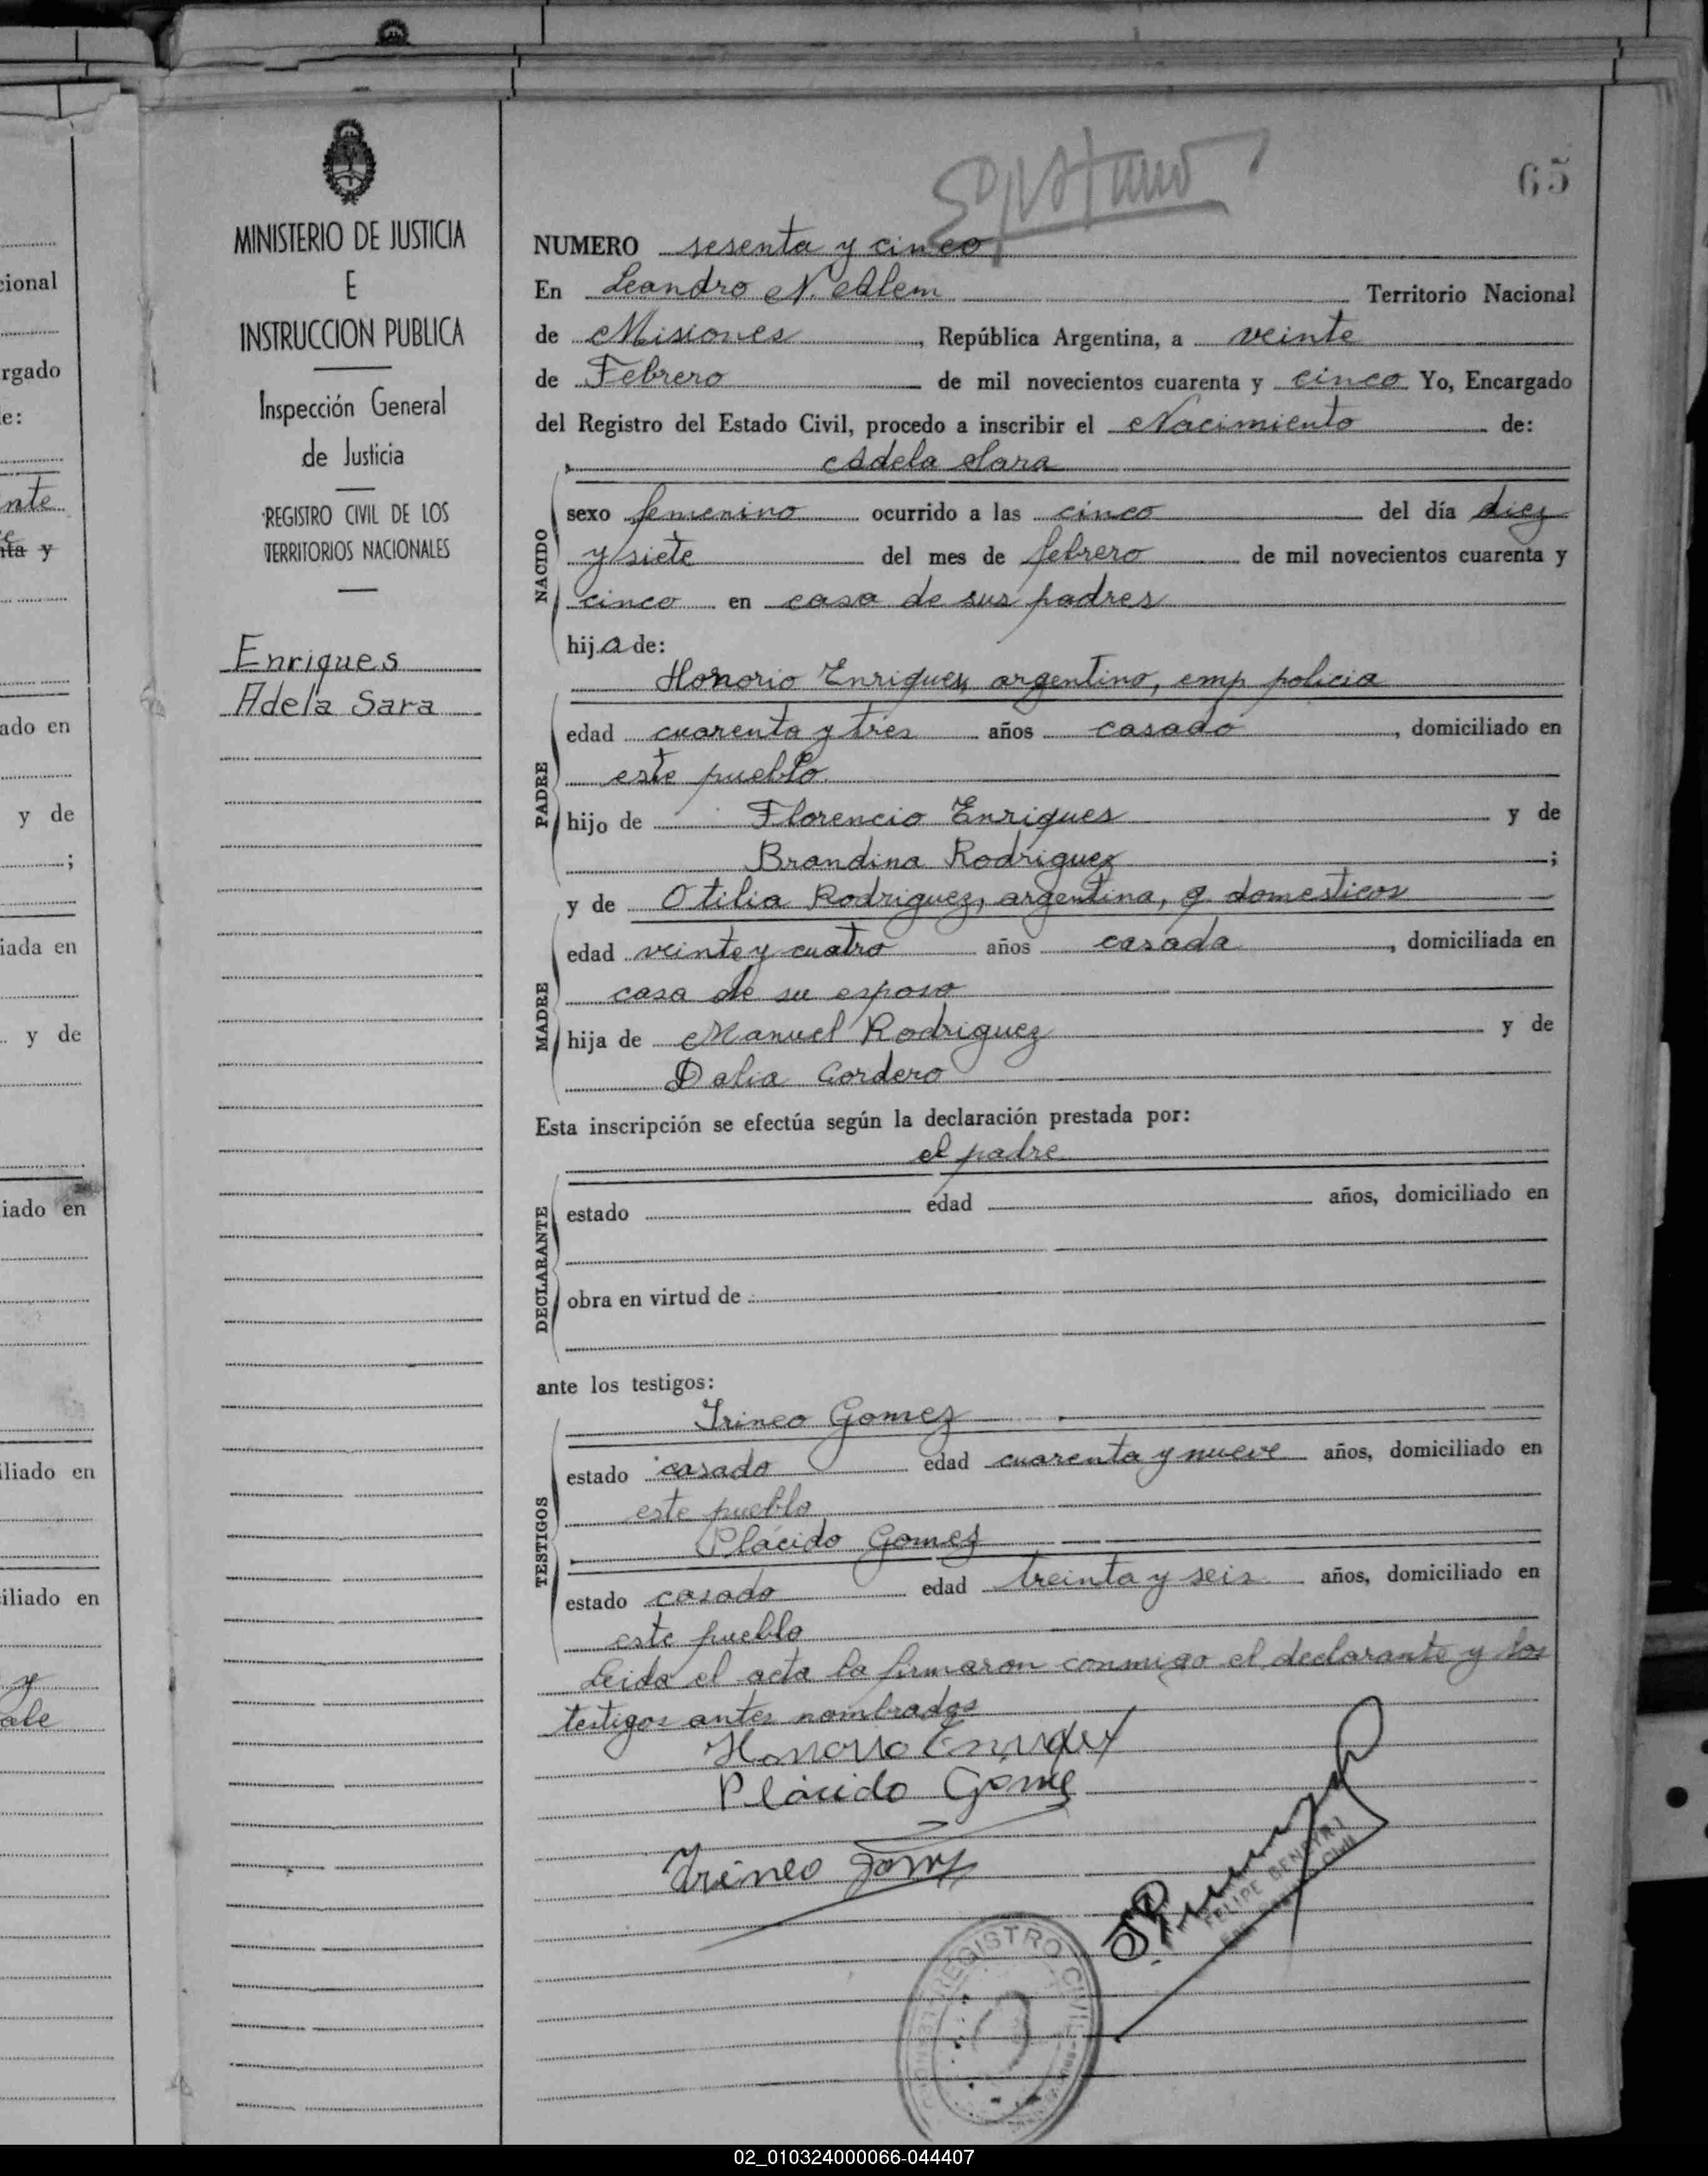 65
NUMERO sesenta y cinco
En Leandro N. Alem Territorio Nacional
de Misiones, República Argentina, a veinte
de Febrero de mil novecientos cuarenta y cinco Yo, Encargado
del Registro del Estado Civil, procedo a inscribir el Nacimiento de:
Adela Sara
NACIDO
sexo femenino ocurrido a las cinco del día diez
y siete del mes de febrero de mil novecientos cuarenta y
cinco en casa de sus padres
hija de:
Honorio Enriques, argentino, emp policia
PADRE
edad cuarenta y tres años casado, domiciliado en
este pueblo
hijo de Florencio Enriques y de
Brandina Rodriguez;
y de Otilia Rodriguez, argentina, q. domesticos
MADRE
edad veinte y cuatro años casada, domiciliada en
casa de su esposo
hija de Manuel Rodriguez y de
Dalia Cordero
Esta inscripción se efectúa según la declaración prestada por:
el padre
DECLARANTE
estado edad años, domiciliado en
obra en virtud de
ante los testigos:
TESTIGOS
Irineo Gomez
estado casado edad cuarenta y nueve años, domiciliado en
este pueblo
Plácido Gomez
estado casado edad treinta y seis años, domiciliado en
este pueblo
Leida el acta la firmaron conmigo el declarante y los
testigos antes nombrados
Honorio Enriquez
Plácido Gomez
Irineo Gomez
FELIPE
REGISTRO CIVIL
MINISTERIO DE JUSTICIA
E
INSTRUCCION PUBLICA
Inspección General
de Justicia
REGISTRO CIVIL DE LOS
TERRITORIOS NACIONALES
Enriques
Adela Sara
cional
rgado
e:
nte
nta y
ado en
y de
;
iada en
y de
iado en
iliado en
iliado en
y
02_010324000066-044407